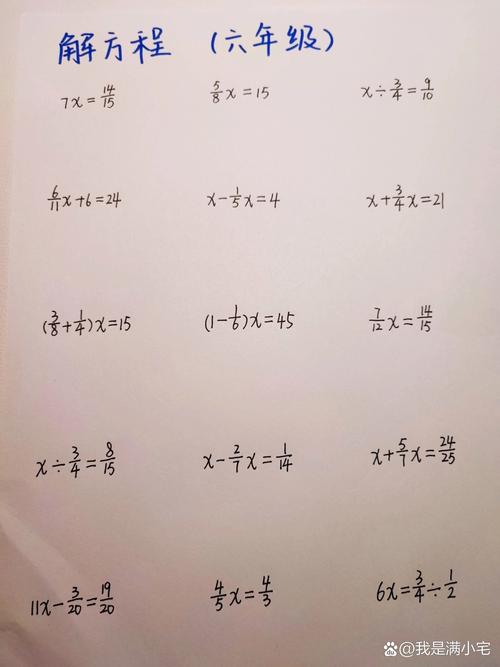 解方程 (六年级)
7x=14/15 5/8x=15 x÷3/4=9/10
6/11x+6=24 x-1/5x=4 x+3/4x=21
(3/8+1/4)x=15 (1-1/6)x=45 7/12x=14/15
x÷3/4=8/15 x-2/7x=1/14 x+5/7x=24/25
11x-3/20=19/20 4/5x=4/3 6x=3/4÷1/2
@我是满小宅